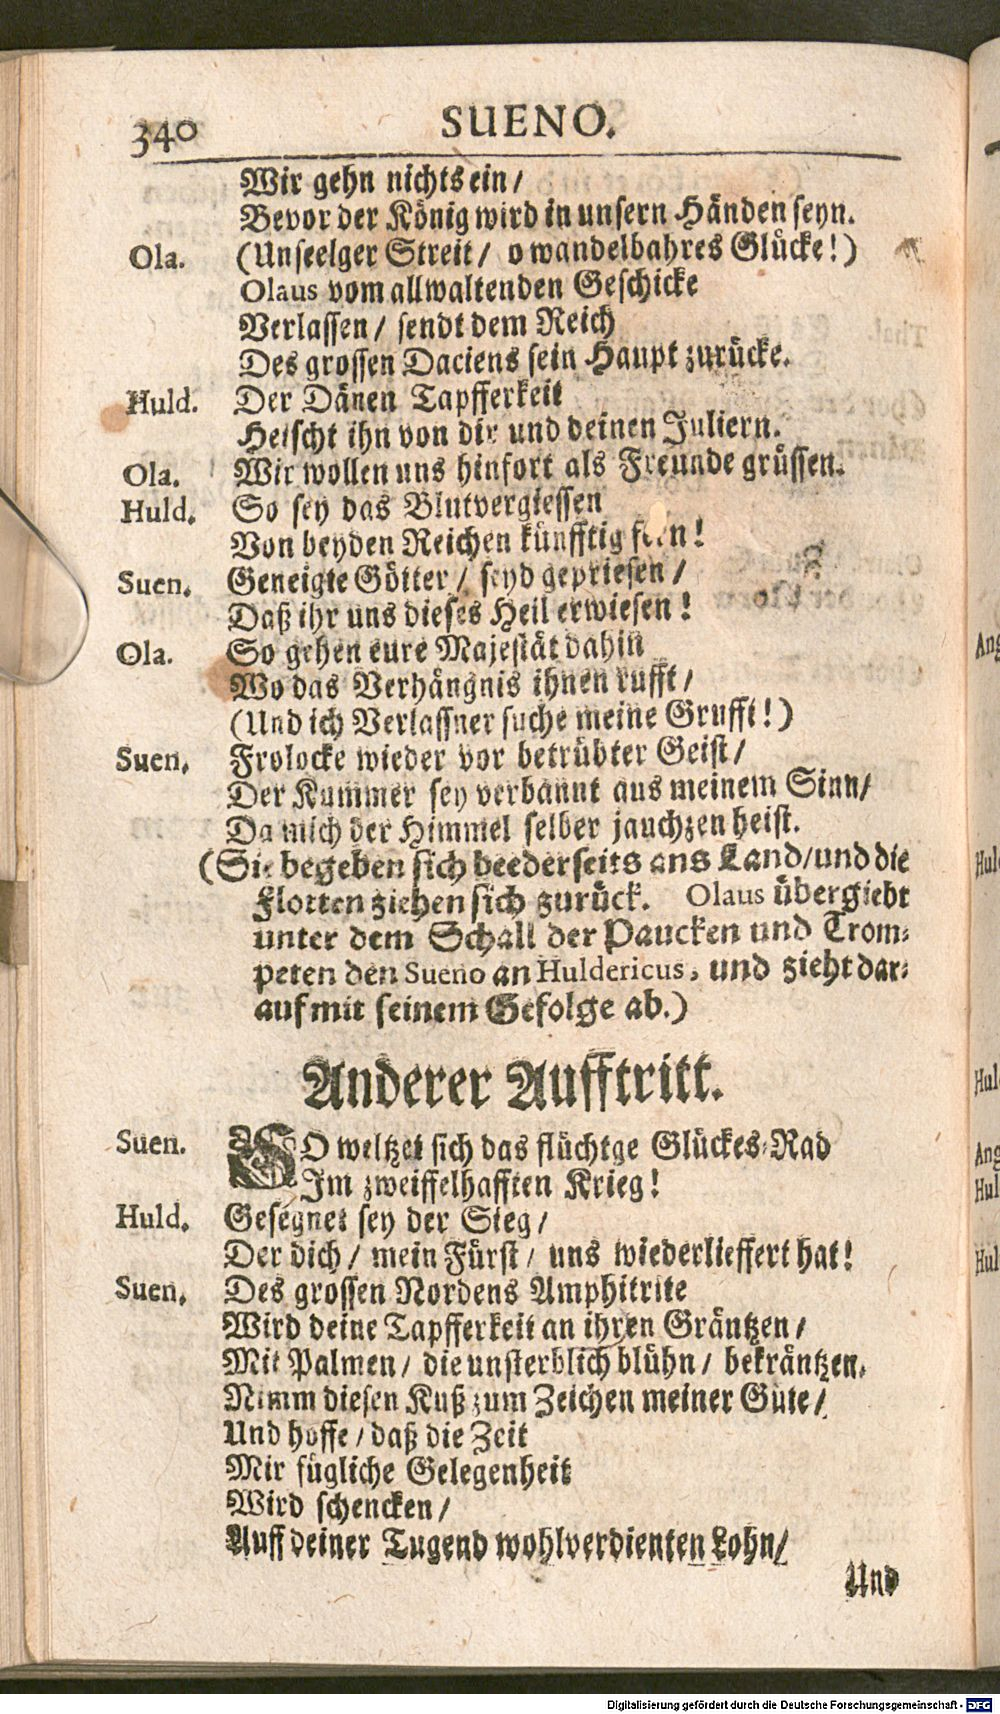 340
SUENO.
Wir gehn nichts ein /
Bevor der König wird in unsern Händen seyn.
Ola. (Unseelger Streit / o wandelbahres Glücke!)
Olaus vom allwaltenden Geschicke
Verlassen / sendt dem Reich
Des grossen Daciens sein Haupt zurücke.
Huld. Der Dänen Tapfferkeit
Heischt ihn von dir und deinen Juliern.
Ola. Wir wollen uns hinfort als Freunde grüssen.
Huld. So sey das Blutvergiessen
Von beyden Reichen künfftig fern!
Suen. Geneigte Götter / seyd gepriesen /
Daß ihr uns dieses Heil erwiesen!
Ola. So gehen eure Majestät dahin
Wo das Verhängnis ihnen rufft /
(Und ich Verlassner suche meine Grufft!)
Suen. Frolocke wieder vor betrübter Geist /
Der Kummer sey verbannt aus meinem Sinn /
Da mich der Himmel selber jauchzen heist.
(Sie begeben sich beederseits ans Land / und die
Flotten ziehen sich zurück. Olaus übergiebt
unter dem Schall der Paucken und Trom-
peten den Sueno an Huldericus, und zieht dar-
auf mit seinem Gefolge ab.)
Anderer Aufftritt.
Suen. SO weltzet sich das flüchtge Glückes-Rad
Im zweiffelhafften Krieg!
Huld. Gesegnet sey der Sieg /
Der dich / mein Fürst / uns wiederlieffert hat!
Suen. Des grossen Nordens Amphitrite
Wird deine Tapfferkeit an ihren Gräntzen /
Mit Palmen / die unsterblich blühn / bekräntzen.
Nimm diesen Kuß zum Zeichen meiner Güte /
Und hoffe / daß die Zeit
Mir fügliche Gelegenheit
Wird schencken /
Auff deiner Tugend wohlverdienten Lohn /
Und
Digitalisierung gefördert durch die Deutsche Forschungsgemeinschaft - DFG